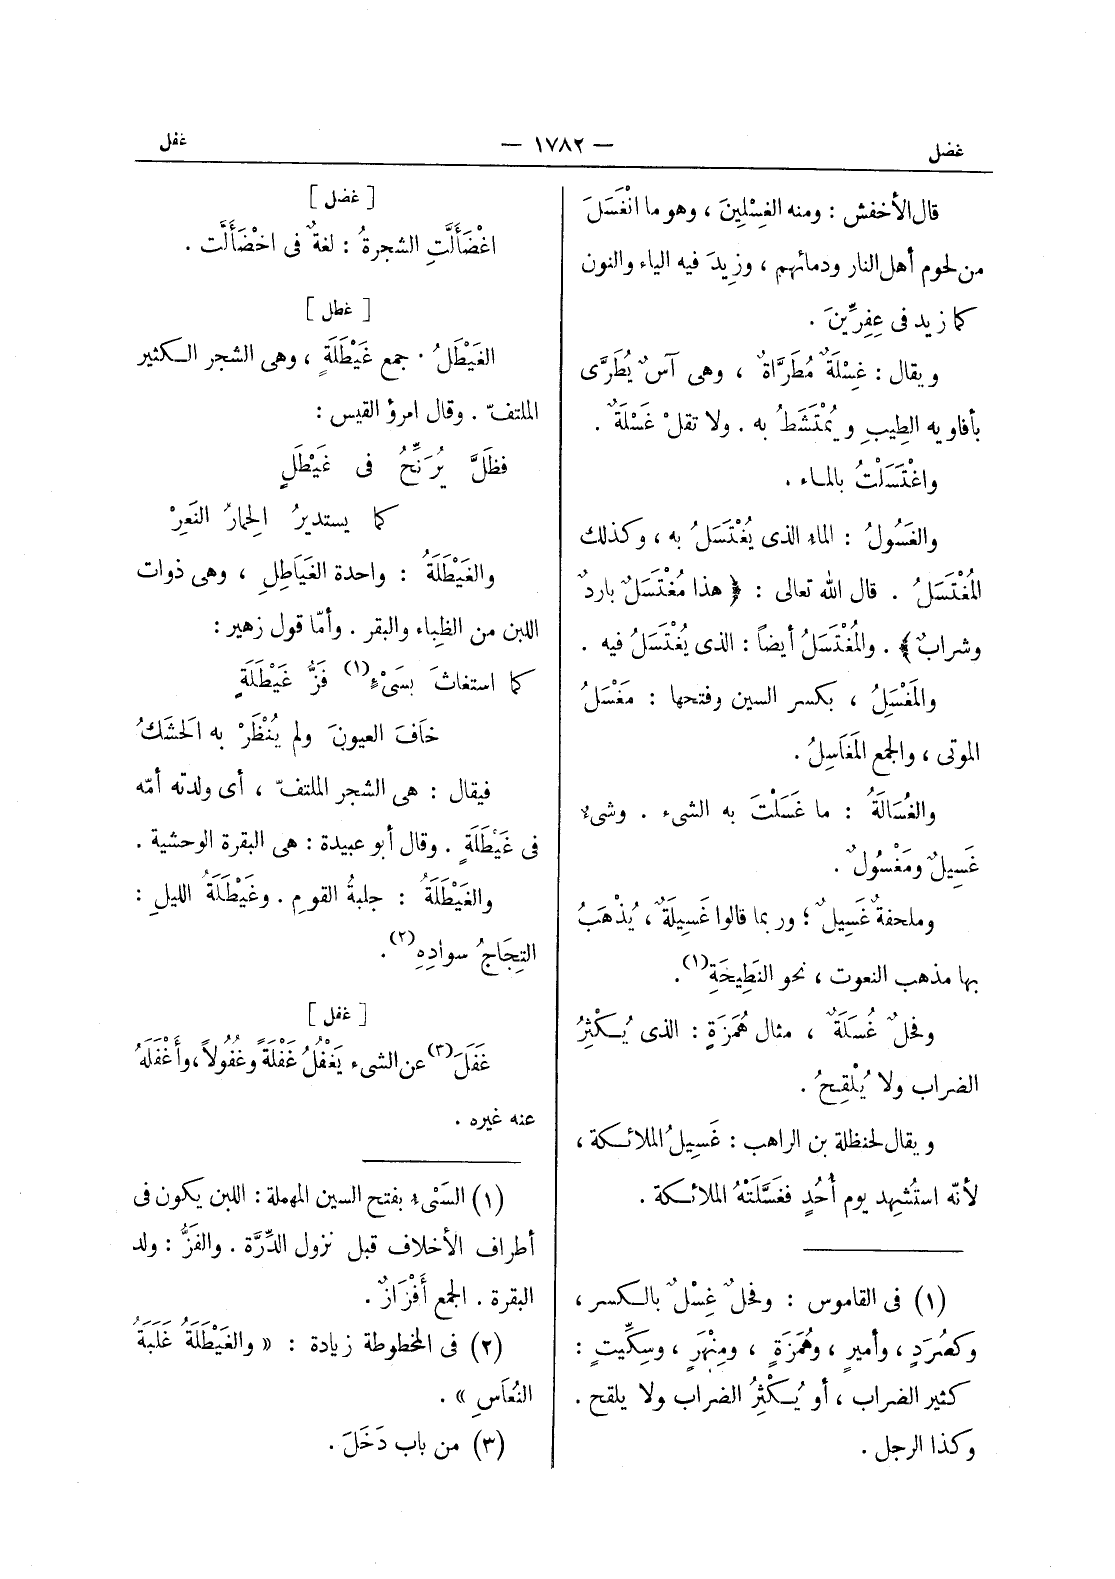 غضل — ١٧٨٢ — غفل
قال الأخفش : ومنه الغِسْلِينَ ، وهو ما انْغَسَلَ
من لحوم أهل النار ودمائهم ، وزِيدَ فيه الياء والنون
كما زيد فى عِفِرِّينَ .
ويقال : غِسْلَةٌ مُطَرَّاةٌ ، وهى آسٌ يُطَرَّى
بأفاويه الطِيبِ ويُمْتَشَطُ به . ولا تقلْ غَسْلَةٌ .
واغْتَسَلْتُ بالماء .
والغَسُولُ : الماء الذى يُغْتَسَلُ به ، وكذلك
المُغْتَسَلُ . قال الله تعالى : ﴿ هذا مُغْتَسَلٌ باردٌ
وشرابٌ ﴾ . والمُغْتَسَلُ أيضاً : الذى يُغْتَسَلُ فيه .
والمَغْسَِلُ ، بكسر السين وفتحها : مَغْسَلُ
الموتى ، والجمع المَغَاسِلُ .
والغُسَالَةُ : ما غَسَلْتَ به الشىء . وشىء
غَسِيلٌ ومَغْسُولٌ .
وملحفةٌ غَسِيلٌ ؛ وربما قالوا غَسِيلَةٌ ، يُذْهَبُ
بها مذهب النعوت ، نحو النَطِيحَةِ (١) .
وفحلٌ غُسَلَةٌ ، مثال هُمَزَةٍ : الذى يُكْثِرُ
الضراب ولا يُلْقِحُ .
ويقال لحنظلة بن الراهب : غَسِيلُ الملائكة ،
لأنّه استُشْهِد يوم أُحُدٍ فغَسَّلَتْهُ الملائكة .
(١) فى القاموس : وفحلٌ غِسْلٌ بالكسر ،
وكصُرَدٍ ، وأميرٍ ، وهُمَزَةٍ ، ومِنْهَرٍ ، وسِكِّيتٍ :
كثير الضراب ، أو يُكْثِرُ الضراب ولا يلقح .
وكذا الرجل .
[ غضل ]
اغْضَأَلَّتِ الشجرةُ : لغةٌ فى اخْضَأَلَّت .
[ غطل ]
الغَيْطَلُ . جمع غَيْطَلَةٍ ، وهى الشجر الكثير
الملتفّ . وقال امرؤ القيس :
فظَلَّ يُرَنِّحُ فى غَيْطَلٍ
كما يستديرُ الحِمارُ النَعِرْ
والغَيْطَلَةُ : واحدة الغَيَاطِلِ ، وهى ذوات
اللبن من الظِباء والبقر . وأمّا قول زهير :
كما استغاثَ بسَىْءٍ (١) فَزُّ غَيْطَلَةٍ
خَافَ العيونَ ولم يُنْظَرْ به الحَشَكُ
فيقال : هى الشجر الملتفّ ، أى ولدته أمّه
فى غَيْطَلَةٍ . وقال أبو عبيدة : هى البقرة الوحشية .
والغَيْطَلَةُ : جلبةُ القومِ . وغَيْطَلَةُ الليلِ :
التِجَاجُ سوادِهِ (٢) .
[ غفل ]
غَفَلَ (٣) عن الشىء يَغْفُلُ غَفْلَةً وغُفُولاً ، وأَغْفَلَهُ
عنه غيره .
(١) السَىْء بفتح السين المهملة : اللبن يكون فى
أطراف الأخلاف قبل نزول الدِّرَّة . والفَزُّ : ولد
البقرة . الجمع أَفْزَازٌ .
(٢) فى المخطوطة زيادة : « والغَيْطَلَةُ غَلَبَةُ
النُعَاسِ » .
(٣) من باب دَخَلَ .